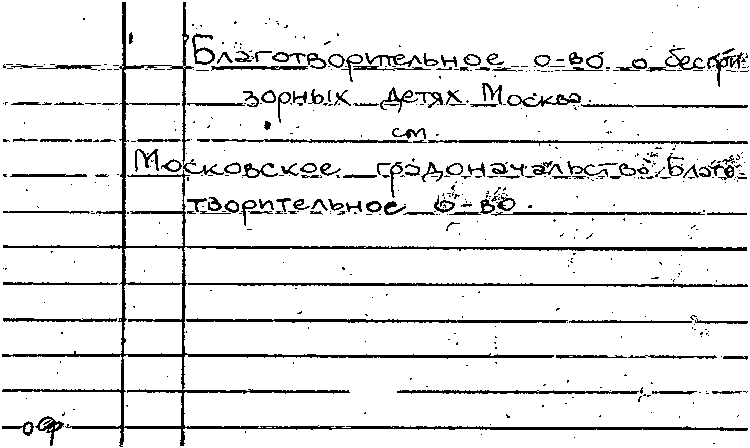 Благотворительное о-во о беспри-
зорных детях. Москва.
см.
Московское градоначальство. Благо-
творительное о-во.